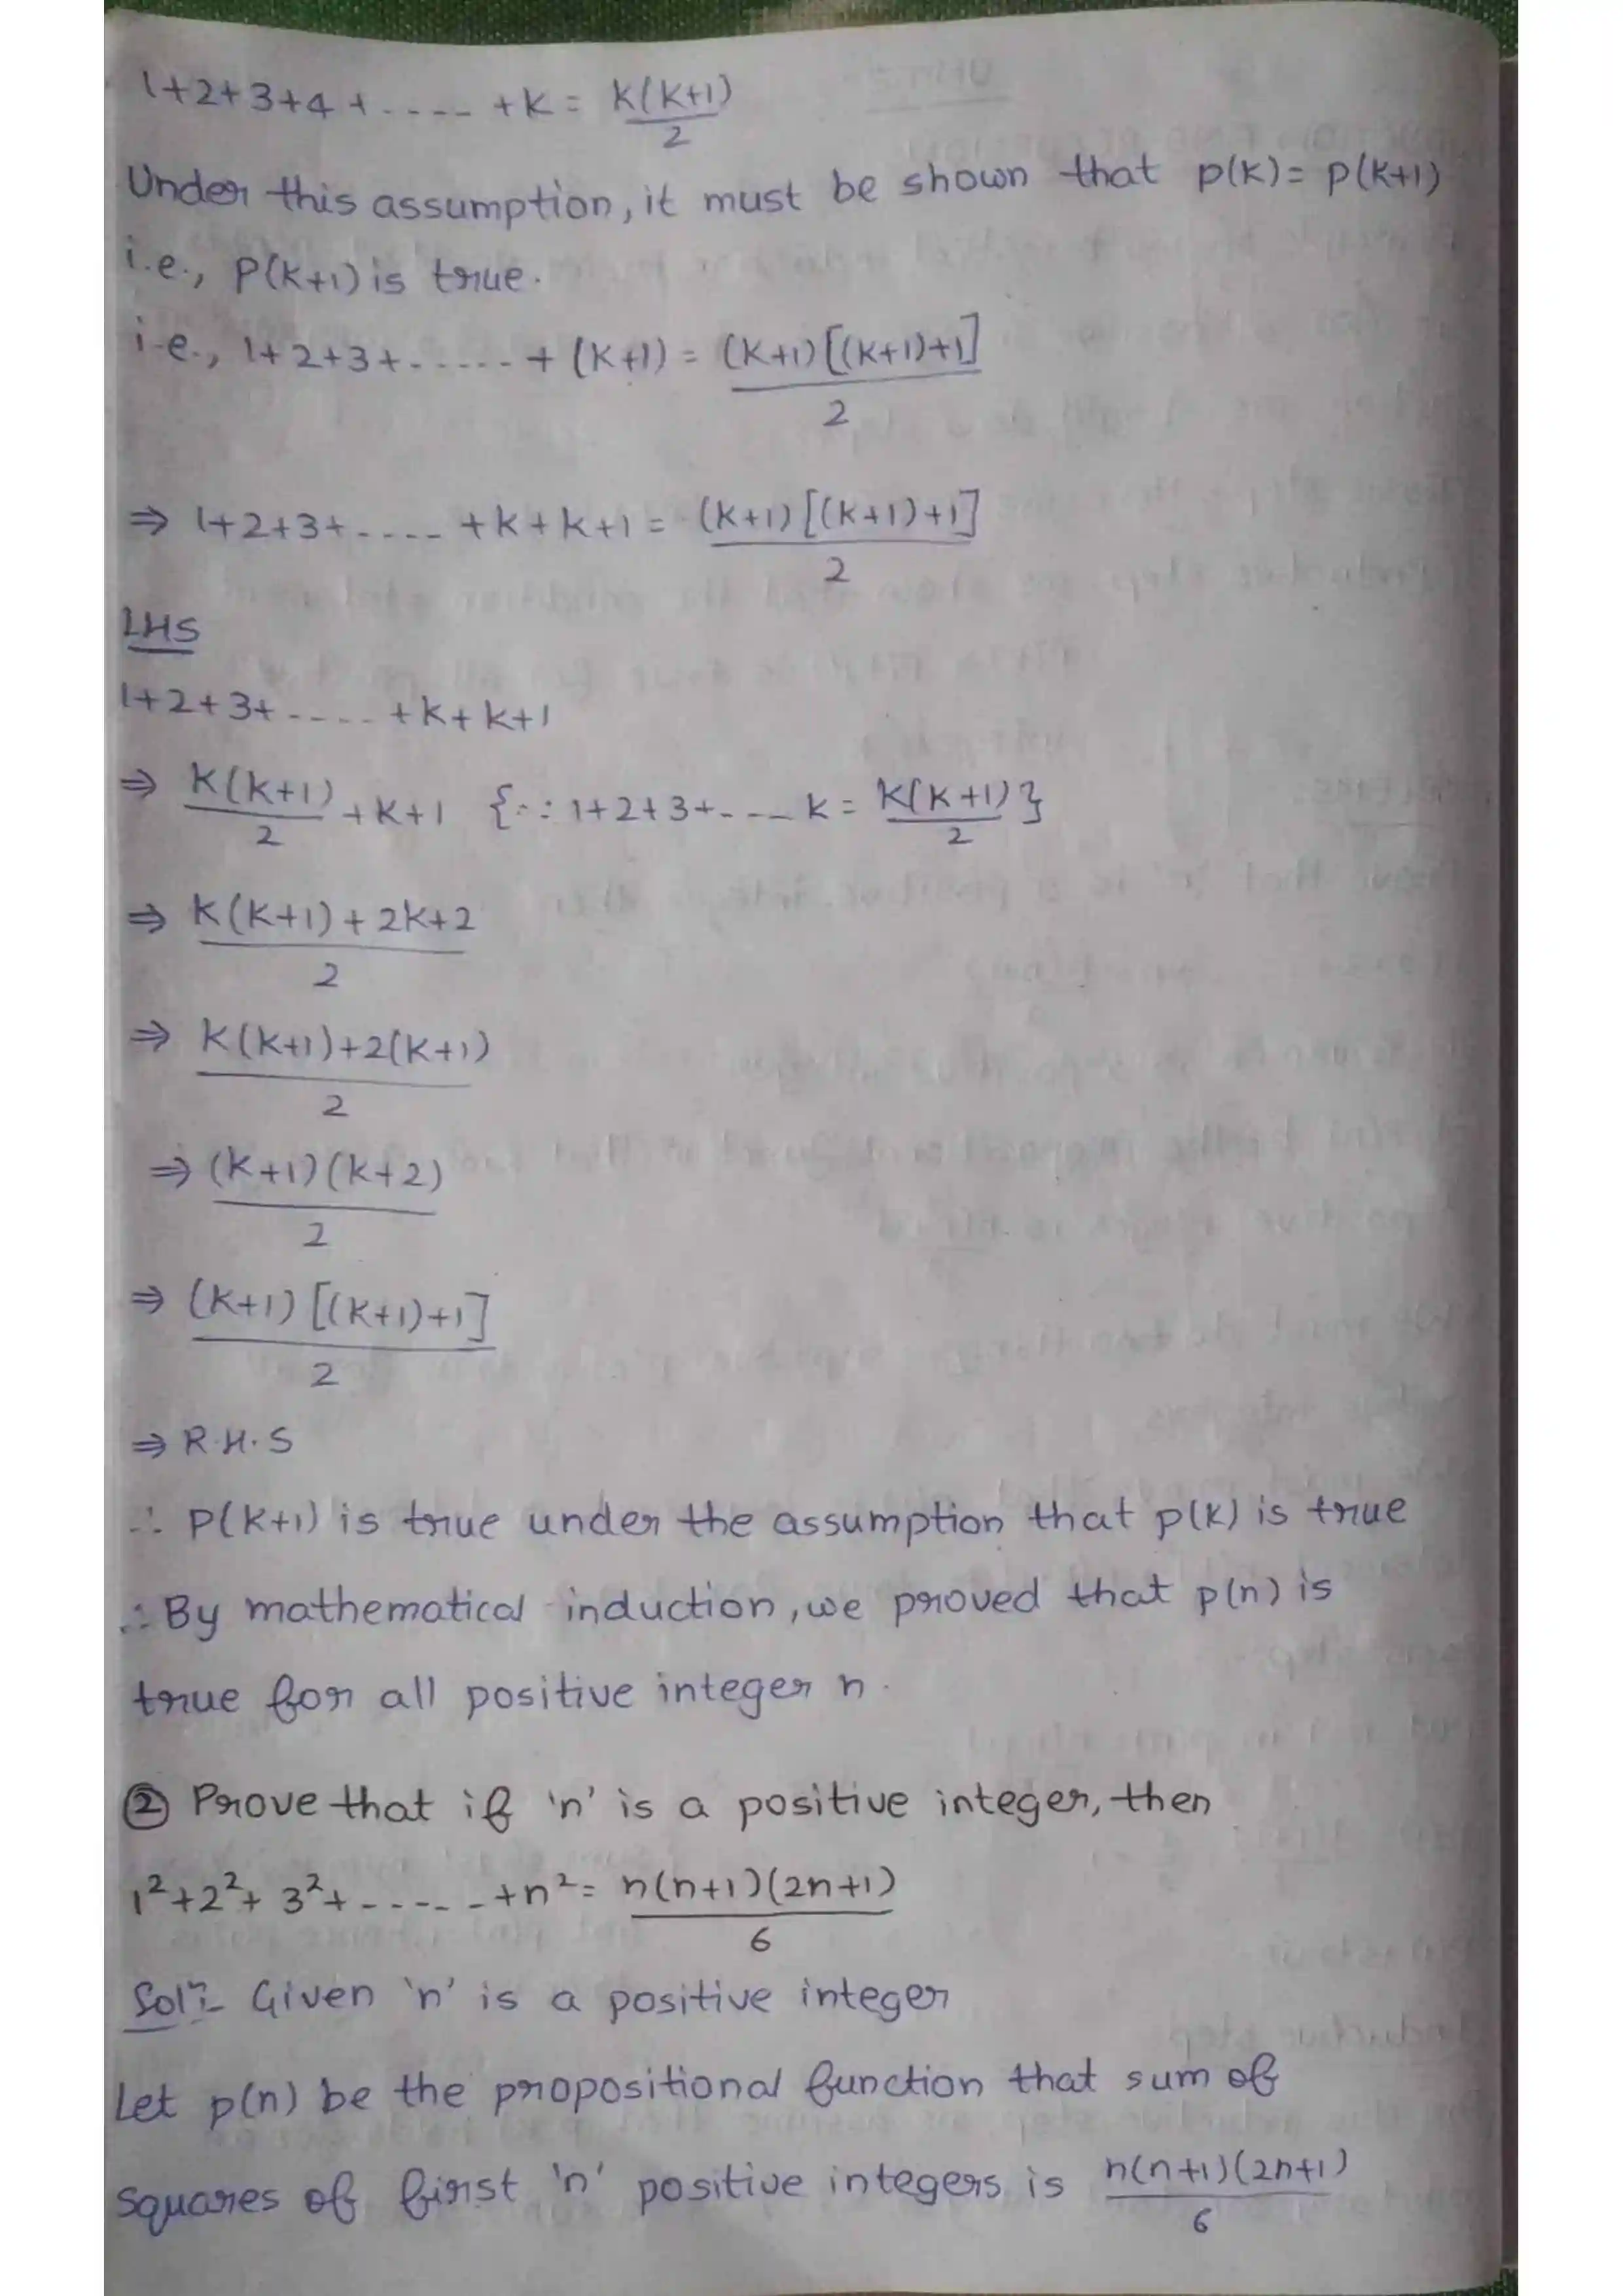 1+2+3+4+.....+k = k(k+1)/2
Under this assumption, it must be shown that p(k) = p(k+1)
i.e., P(k+1) is true.
i.e., 1+2+3+......+(k+1) = (k+1)[(k+1)+1]/2
⇒ 1+2+3+.....+k+k+1 = (k+1)[(k+1)+1]/2
LHS
1+2+3+.....+k+k+1
⇒ k(k+1)/2 +k+1 {∵ 1+2+3+....k = k(k+1)/2}
⇒ k(k+1)+2k+2/2
⇒ k(k+1)+2(k+1)/2
⇒ (k+1)(k+2)/2
⇒ (k+1)[(k+1)+1]/2
⇒ R.H.S
∴ P(k+1) is true under the assumption that p(k) is true
∴ By mathematical induction, we proved that p(n) is
true for all positive integer n.
② Prove that if 'n' is a positive integer, then
1²+2²+3²+......+n² = n(n+1)(2n+1)/6
Solⁿ:- Given 'n' is a positive integer
Let p(n) be the propositional function that sum of
squares of first 'n' positive integers is n(n+1)(2n+1)/6